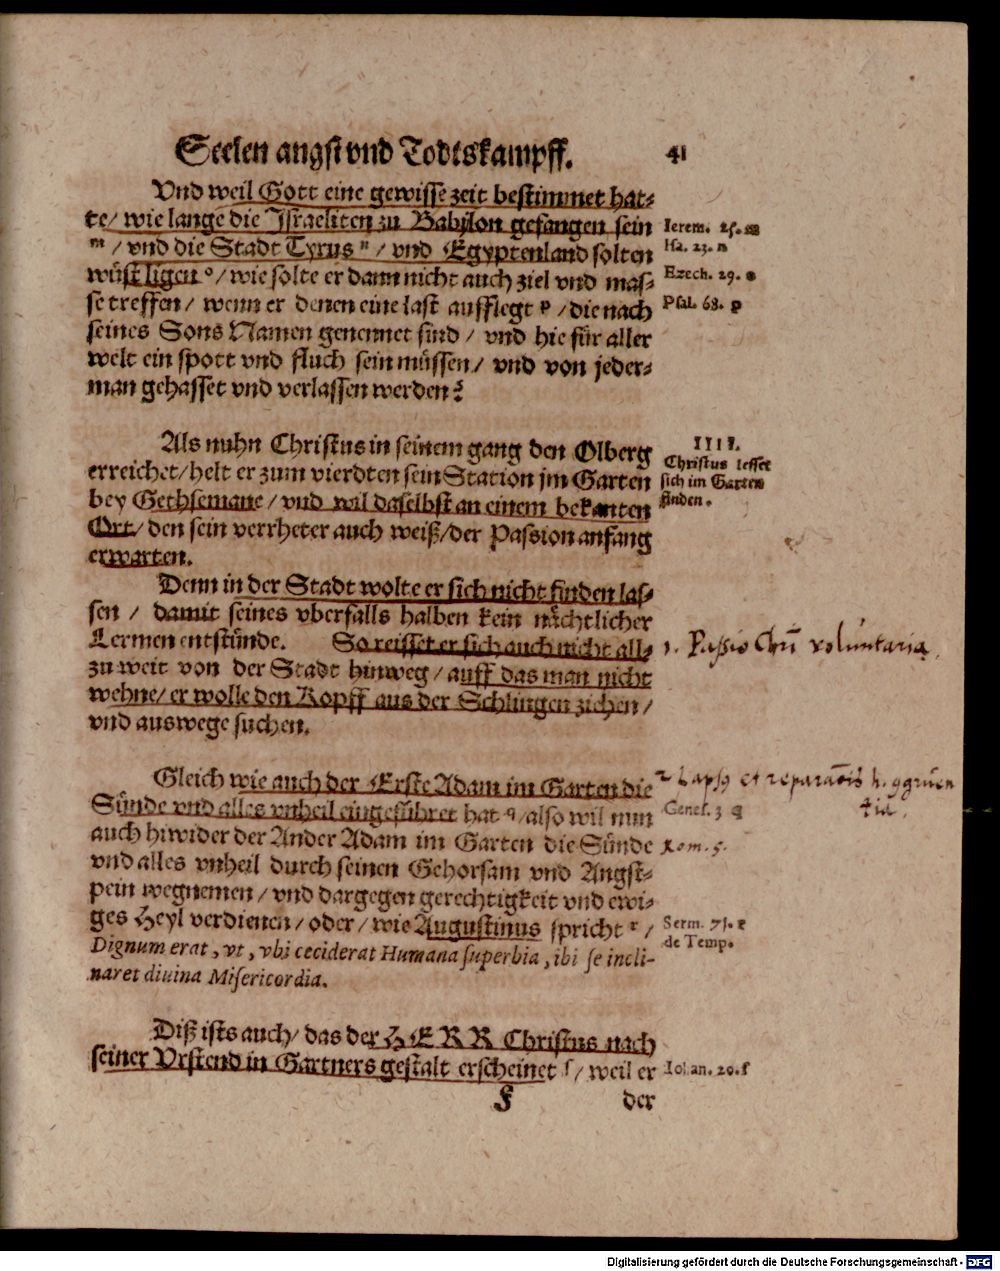 Seelen angst vnd Todtskampff. 41
Vnd weil Gott eine gewisse zeit bestimmet hat-
te/ wie lange die Israeliten zu Babylon gefangen sein
m / vnd die Stadt Tyrus n / vnd Egyptenland solten
wüst ligen o / wie solte er dann nicht auch ziel vnd mas-
se treffen / wenn er denen eine last aufflegt p / die nach
seines Sons Namen genennet sind / vnd hie für aller
welt ein spott vnd fluch sein müssen / vnd von jeder-
man gehasset vnd verlassen werden?
Ierem. 25. m
Isa. 23. n
Ezech. 29. o
Psal. 68. p
Als nuhn Christus in seinem gang den Olberg
erreichet/ helt er zum vierdten sein Station jm Garten
bey Gethsemane / vnd wil daselbst an einem bekanten
Ort/ den sein verrheter auch weiß/ der Passion anfang
erwarten.
IIII.
Christus lesset
sich im Garten
finden.
Denn in der Stadt wolte er sich nicht finden las-
sen / damit seines vberfalls halben kein nächtlicher
Lermen entstünde. So reisset er sich auch nicht all-
zu weit von der Stadt hinweg / auff das man nicht
wehne/ er wolle den Kopff aus der Schlingen ziehen /
vnd auswege suchen.
1. Passio Chri voluntaria.
Gleich wie auch der Erste Adam im Garten die
Sünde vnd alles vnheil eingeführet hat q / also wil nun
auch hiwider der Ander Adam im Garten die Sünde
vnd alles vnheil durch seinen Gehorsam vnd Angst-
pein wegnemen / vnd dargegen gerechtigkeit vnd ewi-
ges Heyl verdienen / oder / wie Augustinus spricht r /
Dignum erat, vt, vbi ceciderat Humana superbia, ibi se incli-
naret diuina Misericordia.
2 Lapsus et reparaōis
Genes. 3 q
Rom. 5.
Serm. 71. r
de Temp.
Diß ists auch/ das der HERR Christus nach
seiner Vrstend in Gartners gestalt erscheinet s / weil er
Iohan. 20. s
F der
Digitalisierung gefördert durch die Deutsche Forschungsgemeinschaft - DFG